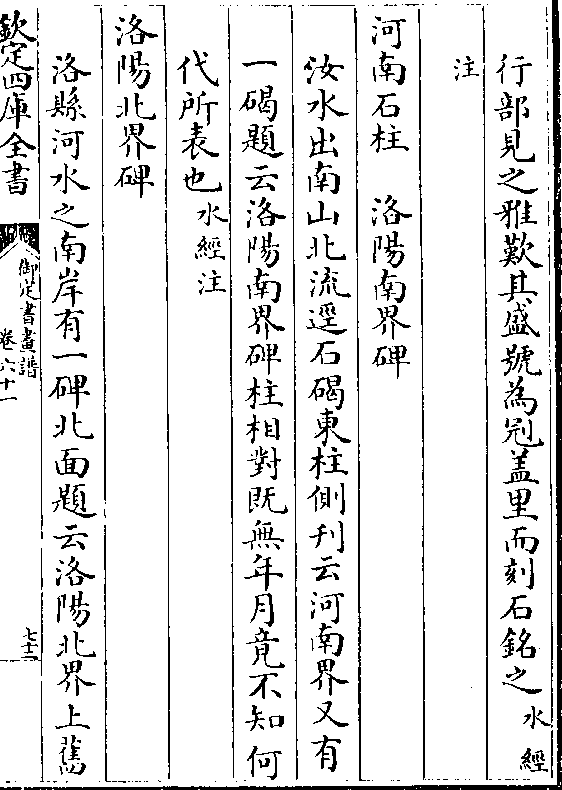 行部見之雅歎其盛號為冠蓋里而刻石銘之水經
注
河南石柱　洛陽南界碑
汝水出南山北流逕石碣東柱側刋云河南界又有
一碣題云洛陽南界碑柱相對既無年月竟不知何
代所表也水經注
洛陽北界碑
洛縣河水之南岸有一碑北面題云洛陽北界上舊
欽定四庫全書
御定書畫譜
卷六十一
七十二